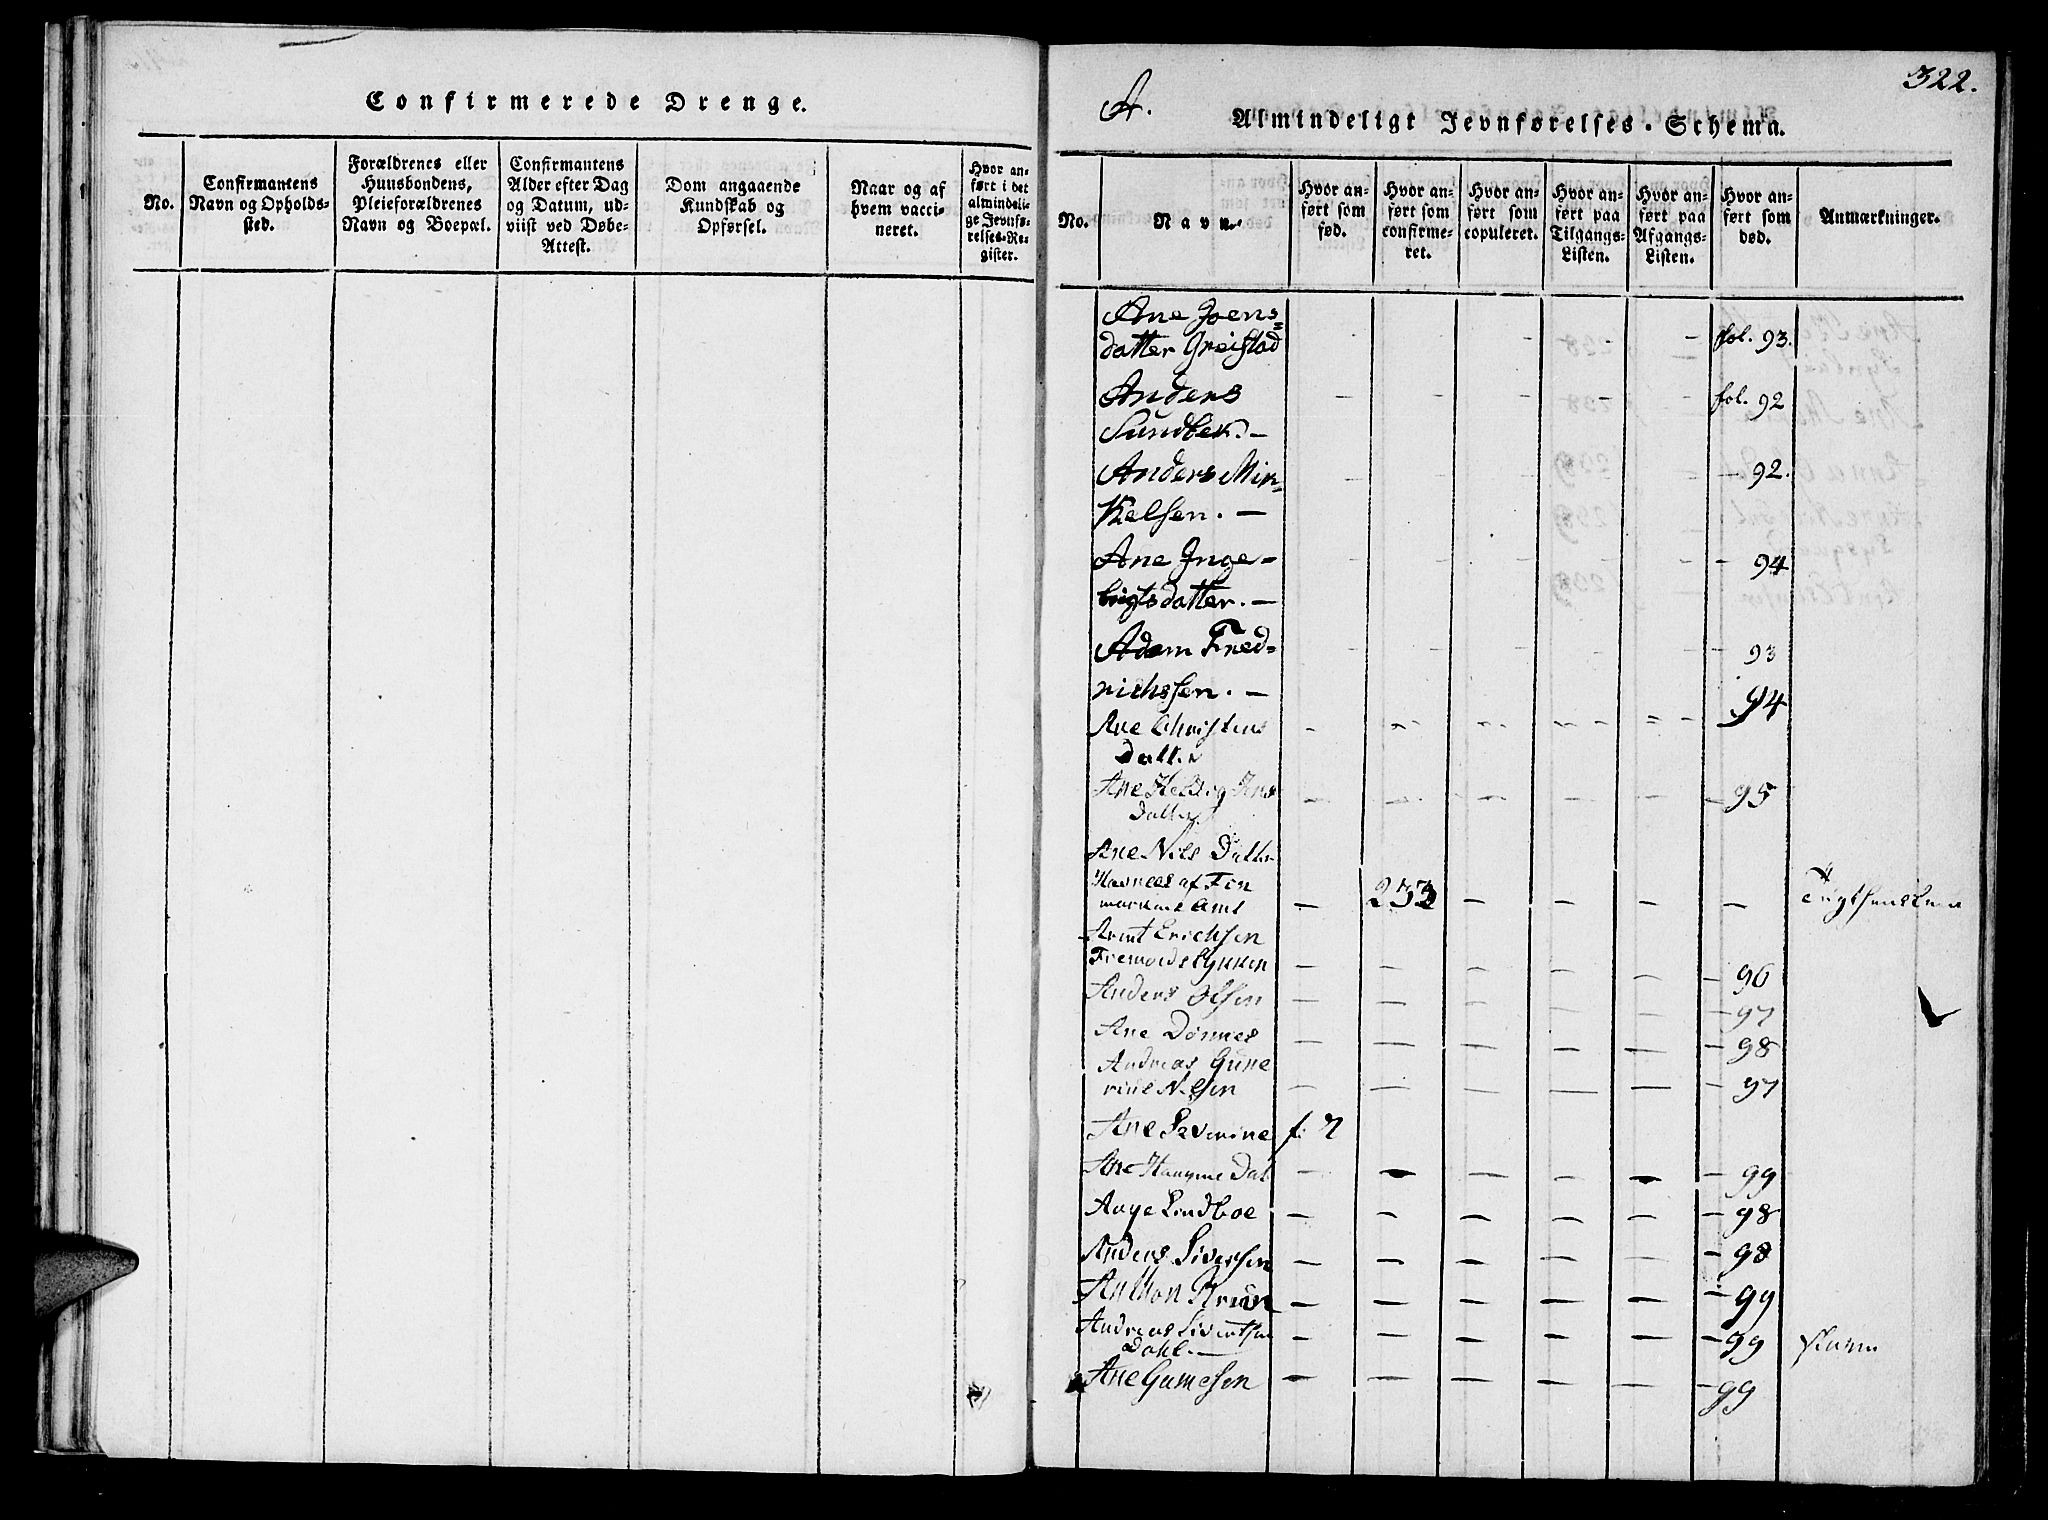 Confirmerede Drenge.
No.
Confirmantens
Navn og Opholds-
sted.
Forældrenes eller
Huusbondens,
Pleieforældrenes
Navn og Boepæl.
Confirmantens
Alder efter Dag
og Datum, ud-
viist ved Døbe-
Attest.
Dom angaaende
Kundskab og
Opførsel.
Naar og af
hvem vacci-
neret.
Hvor an-
ført i det
almindeli-
ge Jevnfø-
relses-Re-
gister.
322.
A.
Almindeligt Jevnførelses-Schema.
No.
Navn.
Hvor an-
ført som
fød.
Hvor an-
ført som
confirme-
ret.
Hvor an-
ført som
copuleret.
Hvor an-
ført paa
Tilgangs-
Listen.
Hvor an-
ført paa
Afgangs-
Listen.
Hvor an-
ført som
død.
Anmærkninger.
Ane Joens=
datter Greistad - - - fol. 93.
Anders - - - - - fol. 92
Sundbek. -
Anders Min=
kelsen. - - - - - - - 92.
Ane Inge=
brigtsdatter. - - - - - - - 94
Adam Fred=
richssen. - - - - - - 93
Ane Christens - - - - - 94
Datter
Ane Hedvig Jens - - - - - - 95
Datter
Ane Nils Datter
Havnees af Fin
markens Amt - 233 - - - -
Arent Erichsen
- - - - - - 96
Anders Olsen - - - - - - 97
Ane Dønnes - - - - - - 98
Andreas Gune
rius Nilsen - - - - - - 97
Ane Severine f. 7
Ane Hansine Dat - - - - - - 99
Aage Lindboe - - - - - - 98
Anders Siversen - - - - - - 98
Anthon Bruun - - - - - - 99
Andreas Siventsen
Dahl. - - - - - - - 99
Ane Gamesen - - - - - - 99